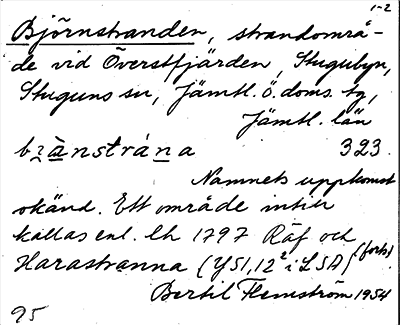 1-2
Björnstranden, strandområ-
de vid Överstfjärden, Stugubyn,
Stuguns sn, Jämtl. ö. doms. tg,
Jämtl. län
323
Namnets uppkomst
okänd. Ett område intill
kallas enl. lh 1797 Räf och
Harastranna (Y51,12² i LSA) (forts)
Bertil Flemström 1954
95